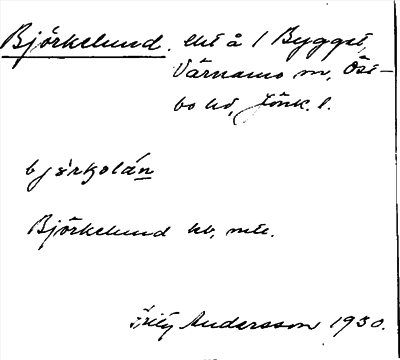 Björkelund, lht å 1 Bygget,
Värnamo sn, Öst-
bo hd, Jönk. l.
björkolán
Björkelund hb, mtl.
Andersson 1930.